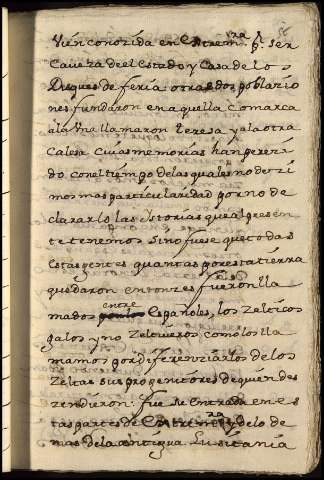 vien conozida en Extrem.ra p.r ser
Caveza del estado y Casa de los
Duques de feria otras dos poblazio
nes fundaron en aquella comarca
a la Una llamaron Teresa y a la otra
Calesa cuias memorias han pereze
do con el tiempo de las quales no dezi
mos mas particularidad por no de
clararlo las istorias que al presen
te tenemos sino fuese que todas
estas gentes quantas por esta tierra
quedaron entonzes fueron lla
mados entre Españoles, los Zelticos
galos y no Zeltiveros como los lla
mamos por diferenziarlos de los
Zeltas sus progenitores de quien des
zendieron: fue su Entrada en es
tas partes de Extrem.ra y de lo de
mas de la antigua Lusitania